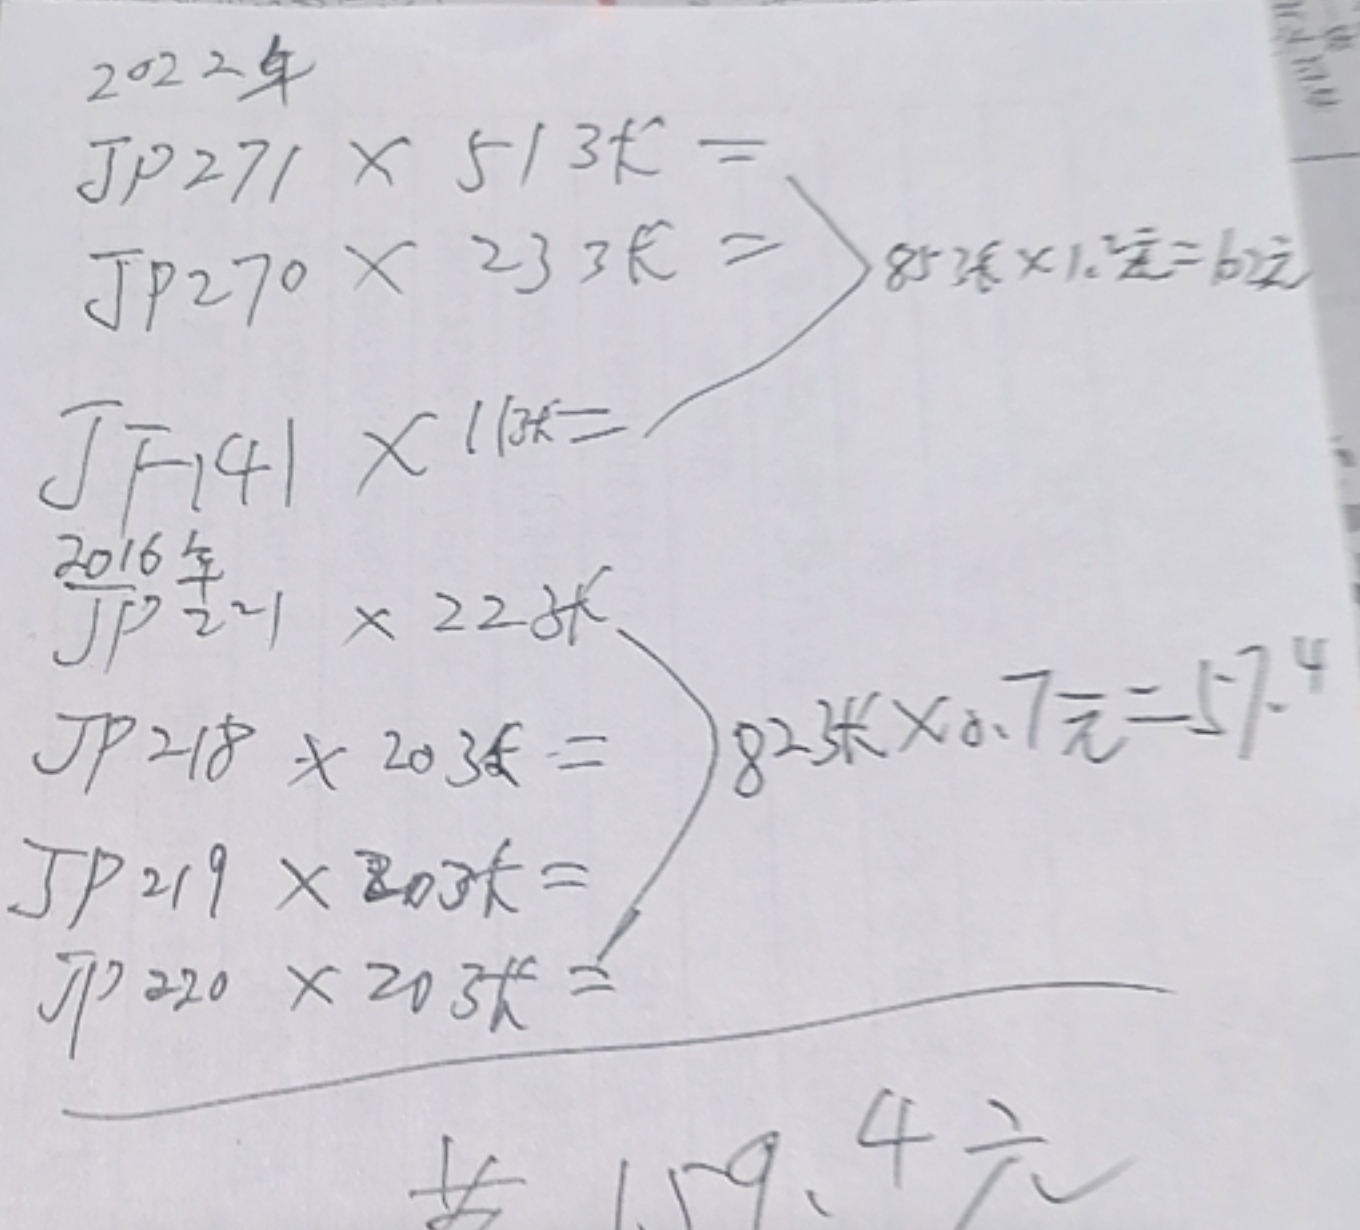 2022年
JP271 × 513张 =
JP270 × 233张 =
853张 × 1.2元 = 62元
JF141 × 113张 =
2016年
JP221 × 223张
JP218 × 203张 =
823张 × 0.7元 = 57.4
JP219 × 203张 =
JP220 × 203张 =
共 159.4元